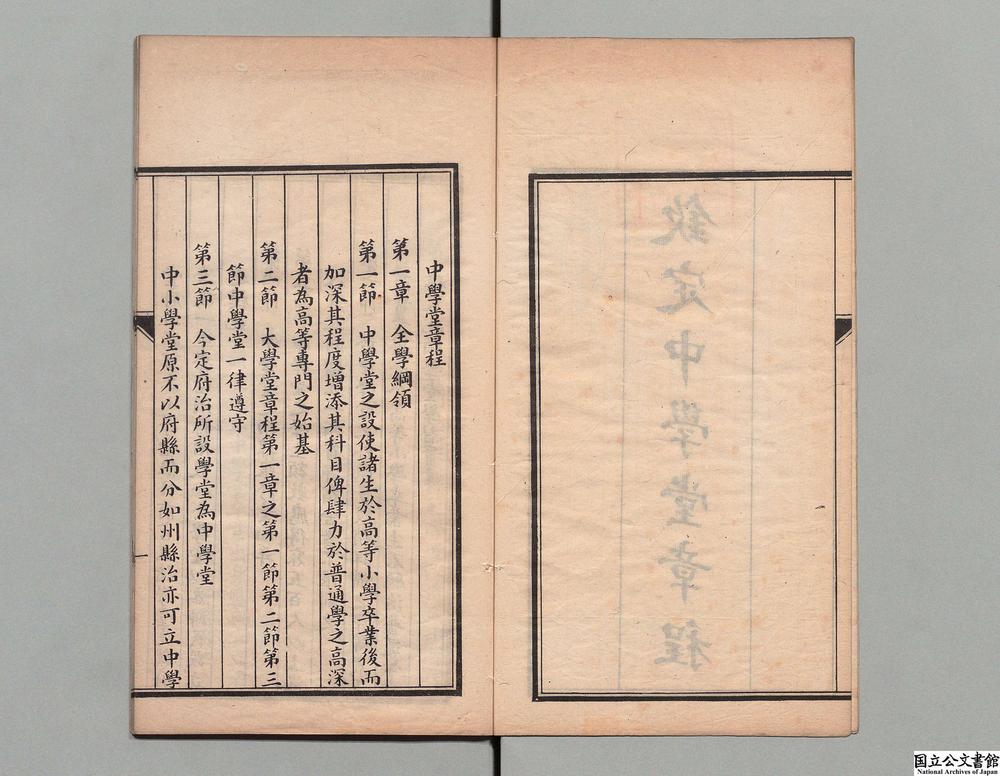 欽定中學堂章程
中學堂章程
第一章　全學綱領
第一節　中學堂之設使諸生於高等小學卒業後而
加深其程度增添其科目俾肆力於普通學之高深
者為高等專門之始基
第二節　大學堂章程第一章之第一節第二節第三
節中學堂一律遵守
第三節　今定府治所設學堂為中學堂
中小學堂原不以府縣而分如州縣治亦可立中學
国立公文書館
National Archives of Japan